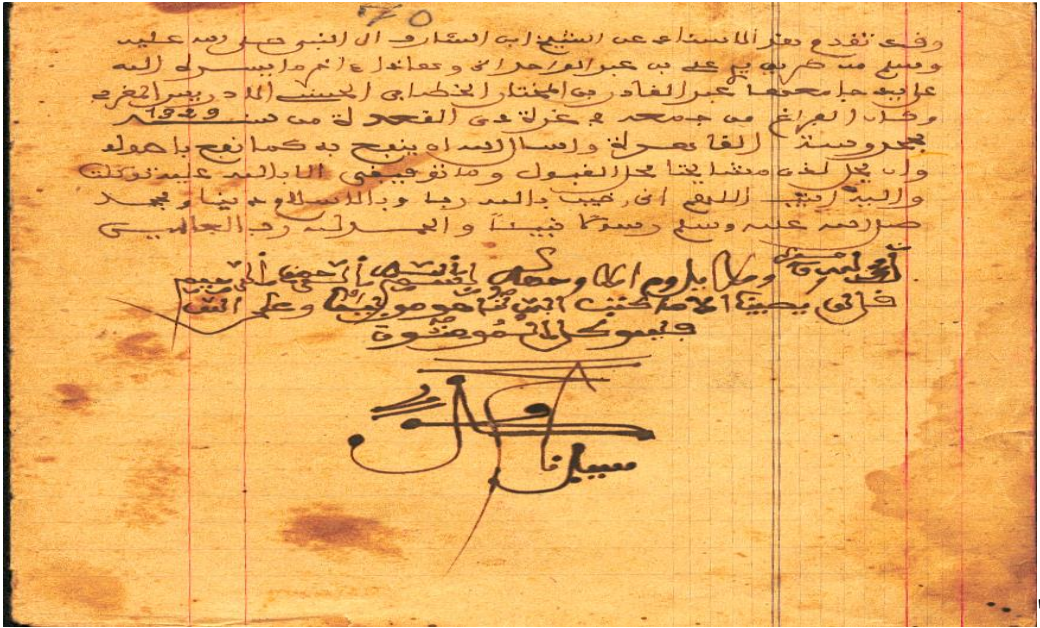 70
وقد تقدم الاسناد عن الشيخ ابن الشارف الى النبي صلى الله عليه
وسلم من طريق علي بن عبد الواحد اخر ما يسر له الله
على يد جامعها عبد القادر بن المختار الخطابي الحسني الادريسي المغربي
وكان الفراغ من جمعه في غرة ذي القعدة من سنة 1929
بمحروسة القاهرة واسال الله ان ينفع به كما نفع باصوله
وان يحل لدى مشايخنا محل القبول وما توفيقي الا بالله عليه توكلت
واليه انيب اللهم اني رضيت بالله ربا وبالاسلام دينا وبمحمد
صلى الله عليه وسلم رسولا نبيئا والحمد لله رب العالمين
ولا يدوم الا وجهه بسم الله الرحمن الرحيم
قل لن يصيبنا الا ما كتب الله لنا هو مولانا وعلى الله
فليتوكل المؤمنون